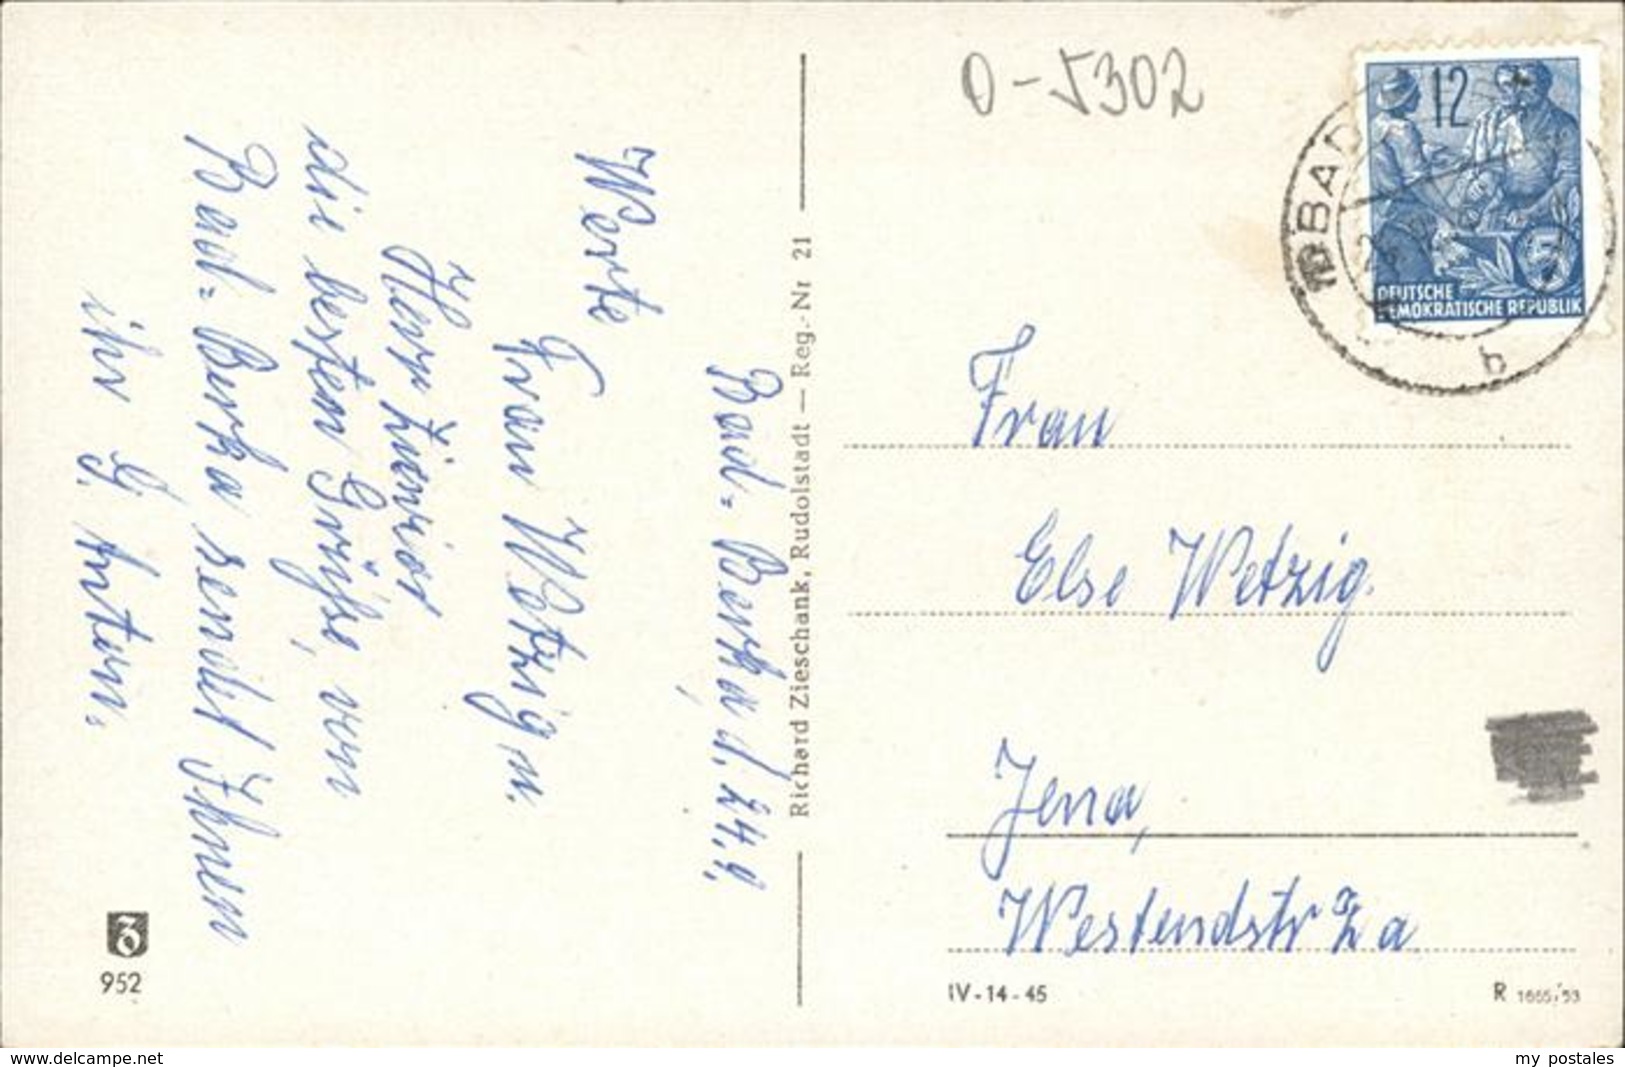 Bad=Berka, d. 24.9.
Werte
Frau Wetzig u.
Herr
die besten Grüße, von
Bad=Berka sendet Ihnen
ihr G. Anton.
952
Richard Zieschank, Rudolstadt — Reg.-Nr 21
O-5302
12
BAD
5
DEUTSCHE
DEMOKRATISCHE REPUBLIK
b
Frau
Else Wetzig.
Jena,
Westendstr 7a
IV-14-45
R 1665/53
www.delcampe.net
my postales